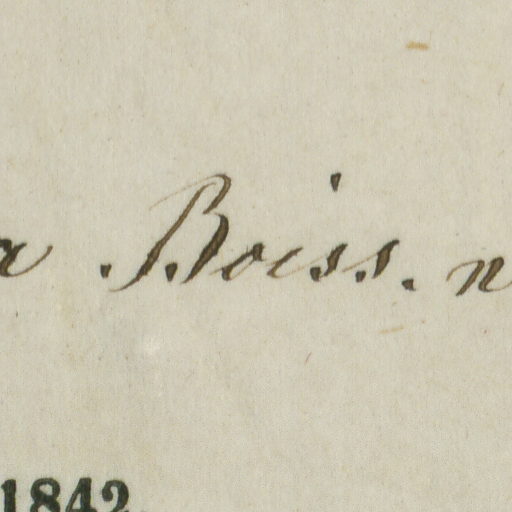 a . Boiss. n
1842.